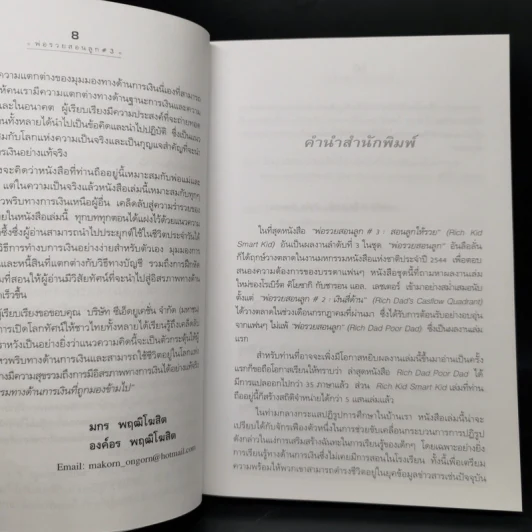 8
• พ่อรวยสอนลูก # 3 •
ความแตกต่างของมุมมองทางด้านการเงินนี่เองที่สามารถ
ให้คนเรามีความแตกต่างทางด้านฐานะการเงินและความ
และในอนาคต ผู้เรียบเรียงมีความประสงค์ที่จะถ่ายทอด
นทั้งหลายได้นำไปเป็นข้อคิดและนำไปปฏิบัติ ซึ่งเป็นแนว
สมกับโลกแห่งความเป็นจริงและเป็นกุญแจสำคัญที่จะนำ
การเงินอย่างแท้จริง
จะคิดว่าหนังสือที่ท่านถืออยู่นี้เหมาะสมกับพ่อแม่และ
แต่ในความเป็นจริงแล้วหนังสือเล่มนี้เหมาะสมกับทุกๆ
วพริบทางการเงินเหนือผู้อื่น เคล็ดลับสู่ความร่ำรวยของ
ยในหนังสือเล่มนี้ ทุกบททุกตอนได้แฝงไว้ด้วยแนวความ
ซึ้งซึ่งผู้อ่านสามารถนำไปประยุกต์ใช้ในชีวิตประจำวันได้
วิธีการทำงบการเงินอย่างง่ายสำหรับตัวเอง มุมมองการ
และหนี้สินที่แตกต่างกับวิธีทางบัญชี รวมถึงการฝึกอัจ
ที่สอนให้ผู้อ่านมีวิสัยทัศน์ที่จะนำไปสู่อิสรภาพทางด้าน
เร็วขึ้น
ผู้เรียบเรียงขอขอบคุณ บริษัท ซีเอ็ดยูเคชั่น จำกัด (มหาชน)
การเปิดโลกทัศน์ให้ชาวไทยทั้งหลายได้เรียนรู้ถึงเคล็ดลับ
ราหวังเป็นอย่างยิ่งว่าแนวความคิดนี้จะเป็นตัวกระตุ้นให้ผู้
วพริบทางด้านการเงินและสามารถใช้ชีวิตอยู่ในโลกแห่ง
างมีความสุขรวมถึงการมีอิสรภาพทางการเงินได้อย่างแท้จริง
รรมทางด้านการเงินที่ถูกมองข้ามไป"
มกร พฤฒิโฆสิต
องค์อร พฤฒิโฆสิต
Email: makorn_ongorn@hotmail.com
คำนำสำนักพิมพ์
ในที่สุดหนังสือ "พ่อรวยสอนลูก # 3 : สอนลูกให้รวย" (Rich Kid
Smart Kid) อันเป็นผลงานลำดับที่ 3 ในชุด "พ่อรวยสอนลูก" อันลือลั่น
ก็ได้ฤกษ์วางตลาดในงานมหกรรมหนังสือแห่งชาติประจำปี 2544 เพื่อตอบ
สนองความต้องการของบรรดาแฟนๆ หนังสือชุดนี้ที่ถามหาผลงานเล่ม
ใหม่ของโรเบิร์ต คิโยซากิ กับชารอน แอล. เลชเตอร์ เข้ามาอย่างสม่ำเสมอนับ
ตั้งแต่ "พ่อรวยสอนลูก # 2 : เงินสี่ด้าน" (Rich Dad's Casflow Quadrant)
ได้วางตลาดในช่วงเดือนกรกฎาคมที่ผ่านมา ซึ่งได้รับการต้อนรับอย่างอบอุ่น
จากแฟนๆ ไม่แพ้ "พ่อรวยสอนลูก" (Rich Dad Poor Dad) ซึ่งเป็นผลงานเล่ม
แรก
สำหรับท่านที่อาจจะเพิ่งมีโอกาสหยิบผลงานเล่มนี้ขึ้นมาอ่านเป็นครั้ง
แรกก็ขอถือโอกาสเรียนให้ทราบว่า ล่าสุดหนังสือ Rich Dad Poor Dad ได้
มีการแปลออกไปกว่า 35 ภาษาแล้ว ส่วน Rich Kid Smart Kid เล่มที่ท่าน
ถืออยู่นี้ก็สร้างสถิติจำหน่ายได้กว่า 5 แสนเล่มแล้ว
ในท่ามกลางกระแสปฏิรูปการศึกษาในบ้านเรา หนังสือเล่มนี้น่าจะ
เปรียบได้กับจักรเฟืองตัวหนึ่งในการช่วยขับเคลื่อนกระบวนการการปฏิรูป
ดังกล่าวในแง่การเสริมสร้างฉันทะในการเรียนรู้ของเด็กๆ โดยเฉพาะอย่างยิ่ง
การเรียนรู้ทางด้านการเงินซึ่งไม่เคยมีการสอนในโรงเรียน ทั้งนี้เพื่อเตรียม
ความพร้อมให้พวกเขาสามารถดำรงชีวิตอยู่ในยุคข้อมูลข่าวสารเช่นปัจจุบัน